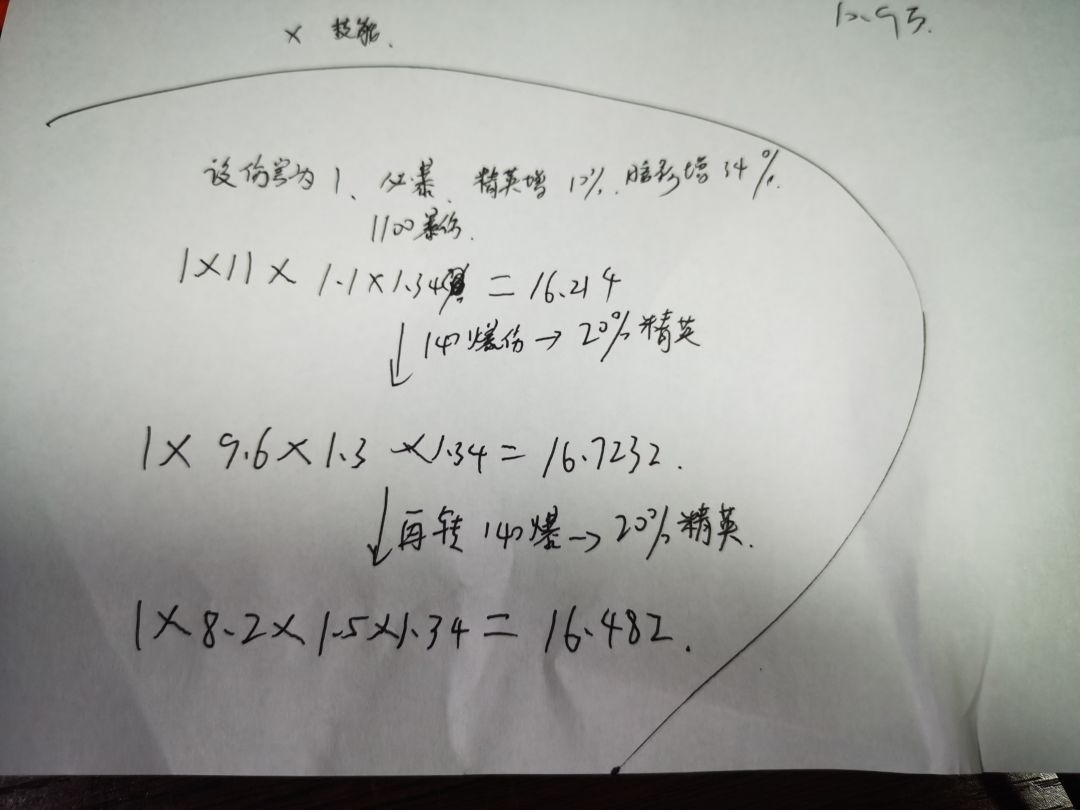 × 技能.
设伤害为1、必暴、精英增10%.暗影增34%.
1100暴伤.
1×11× 1.1×1.34 = 16.214
↓ 140爆伤→20%精英
1× 9.6×1.3 ×1.34= 16.7232.
↓ 再转 140爆→20%精英.
1×8.2×1.5×1.34= 16.482.